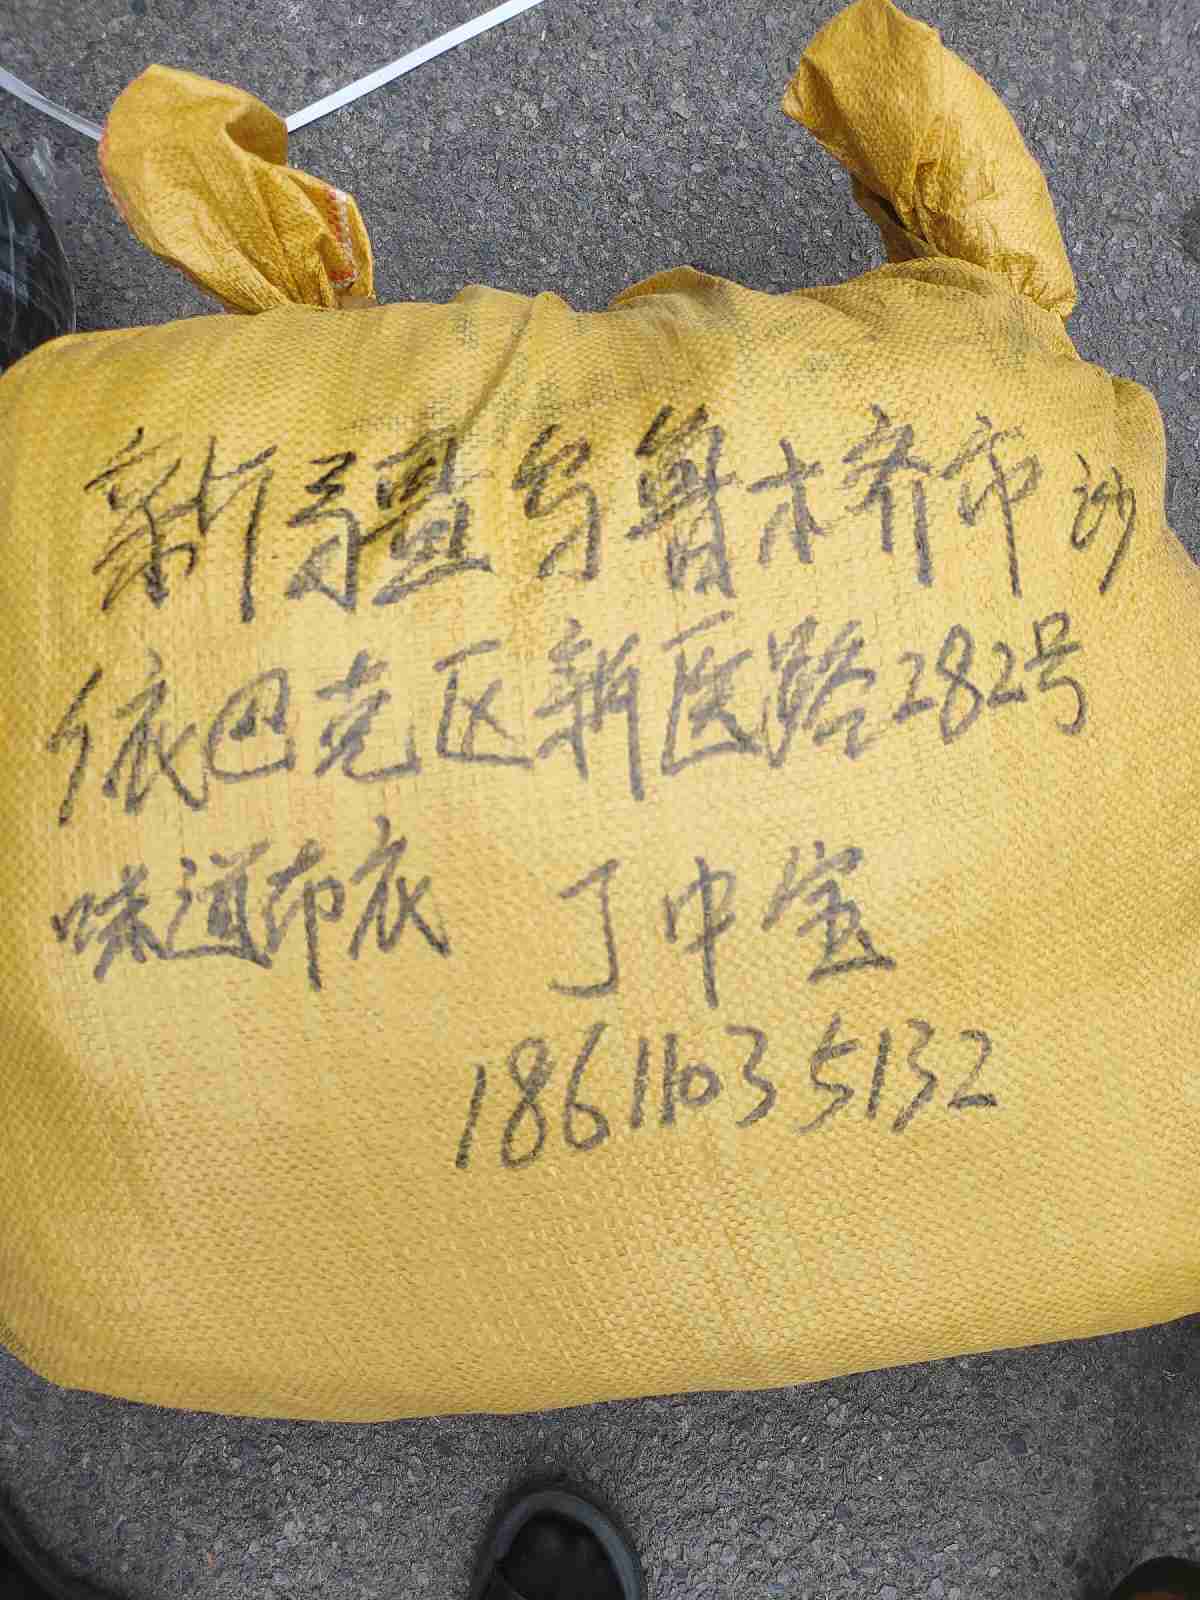 新疆乌鲁木齐市沙
依巴克区新医路282号
味道布衣 丁中宝
18611035132